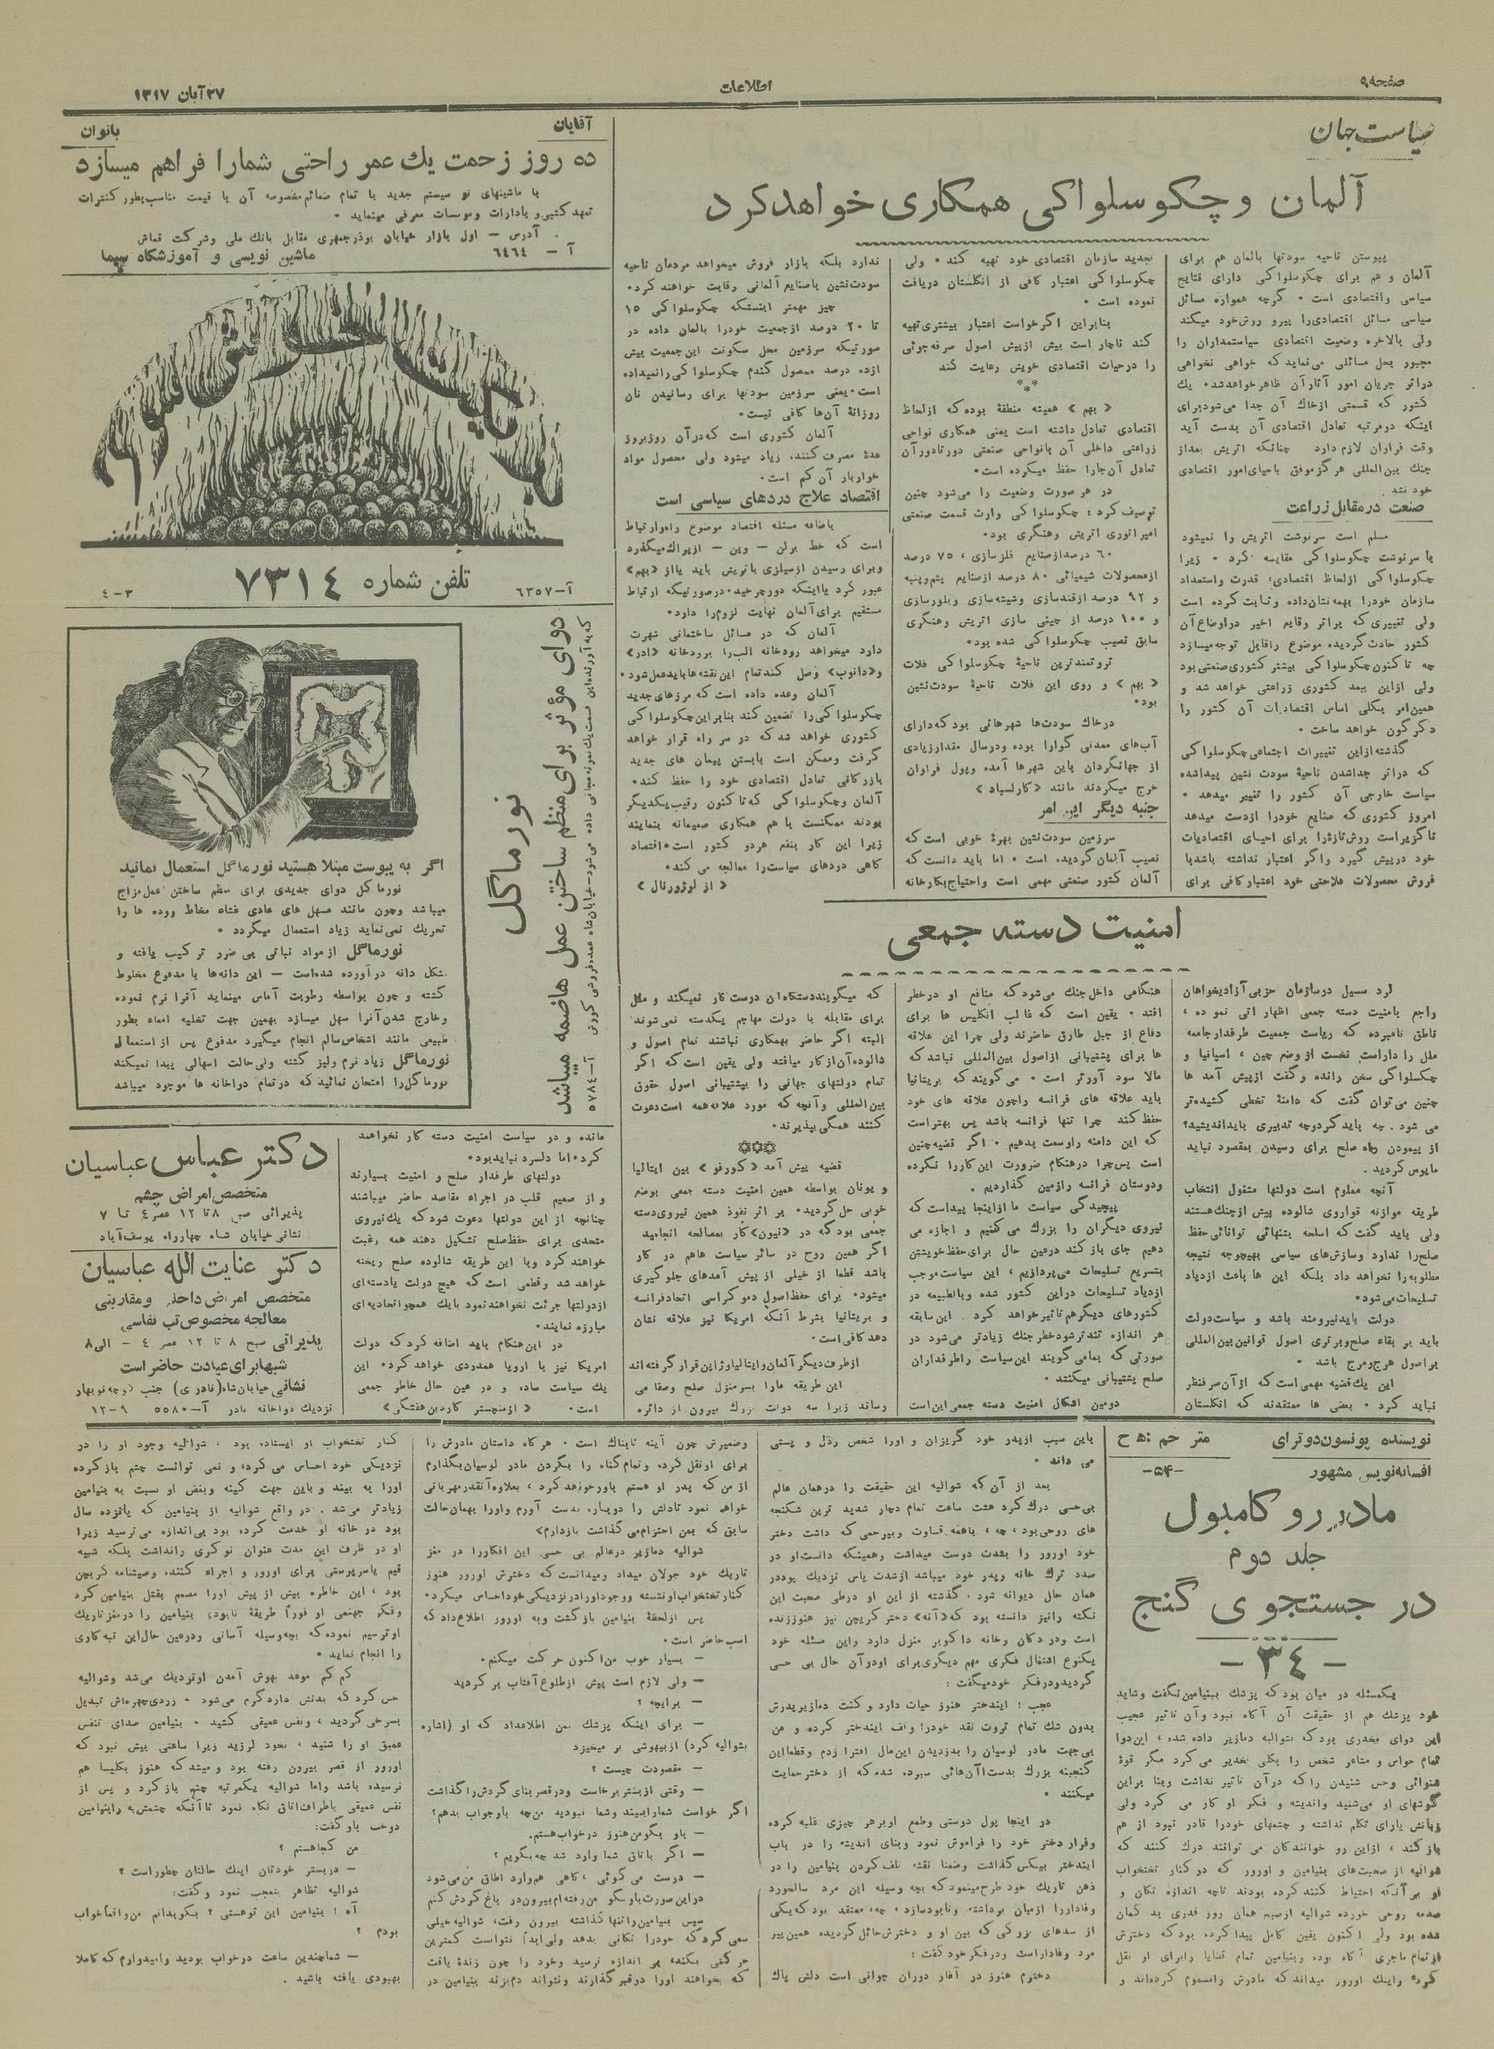 صفحه ۹
اطلاعات
۲۷ آبان ۱۳۱۷
سیاست جهان
آلمان و چکوسلواکی همکاری خواهد کرد
پیوستن ناحیه سودتها بالمان هم برای
آلمان و هم برای چکوسلواکی دارای نتایج
سیاسی و اقتصادی است • گرچه همواره مسائل
سیاسی مسائل اقتصادی را پیرو روش خود میکند
ولی بالاخره وضعیت اقتصادی سیاستمداران را
مجبور بحل مسائلی می نماید که خواهی نخواهی
در اثر جریان امور آثار آن ظاهر خواهد شد • یك
کشور که قسمتی از خاك آن جدا می شود برای
اینکه دو مرتبه تعادل اقتصادی آن بدست آید
وقت فراوان لازم دارد چنانکه اتریش بعد از
جنك بین المللی هرگز موفق باحیای امور اقتصادی
خود نشد .
صنعت در مقابل زراعت
مسلم است سرنوشت اتریش را نمیشود
با سرنوشت چکوسلواکی مقایسه کرد • زیرا
چکوسلواکی از لحاظ اقتصادی، قدرت و استعداد
سازمان خود را بهمه نشان داده و ثابت کرده است
ولی تغییری که بر اثر وقایع اخیر در اوضاع آن
کشور حادث گردیده موضوع را قابل توجه میسازد
چه تا کنون چکوسلواکی بیشتر کشوری صنعتی بود
ولی از این ببعد کشوری زراعتی خواهد شد و
همین امر بکلی اساس اقتصادیات آن کشور را
دگرگون خواهد ساخت •
گذشته از این تغییرات اجتماعی چکوسلواکی
که در اثر جدا شدن ناحیهٔ سودت نشین پیدا شده
سیاست خارجی آن کشور را تغییر میدهد •
امروز کشوری که صنایع خود را از دست میدهد
ناگزیر است روش تازه را برای احیای اقتصادیات
خود در پیش گیرد و اگر اعتبار نداشته باشد با
فروش محصولات فلاحتی خود اعتبار کافی برای
تجدید سازمان اقتصادی خود تهیه کند • ولی
چکوسلواکی اعتبار کافی از انگلستان دریافت
نموده است •
بنابراین اگر خواست اعتبار بیشتری تهیه
کند ناچار است بیش از پیش اصول صرفه جوئی
را در حیات اقتصادی خویش رعایت کند
***
« بهم » همیشه منطقهٔ بوده که از لحاظ
اقتصادی تعادل داشته است یعنی همکاری نواحی
زراعتی داخلی آن با نواحی صنعتی دور تا دور آن
تعادل آن جا را حفظ میکرده است •
در هر صورت وضعیت را می شود چنین
توصیف کرد : چکوسلواکی وارث قسمت صنعتی
امپراتوری اتریش و هنگری بود •
۶۰ درصد از صنایع فلز سازی ، ۷۵ درصد
از محصولات شیمیائی ۸۰ درصد از صنایع پشم و پنبه
و ۹۲ درصد از قند سازی و شیشه سازی و بلور سازی
و ۱۰۰ درصد از چینی سازی اتریش و هنگری
سابق نصیب چکوسلواکی شده بود •
ثروتمندترین ناحیهٔ چکوسلواکی فلات
« بهم » و روی این فلات ناحیهٔ سودت نشین
بود •
در خاك سودت ها شهر هائی بود که دارای
آب های معدنی گوارا بوده و در سال مقدار زیادی
از جهانگردان باین شهر ها آمده و پول فراوان
خرج میکردند مانند « کارلسباد »
جنبه دیگر این امر
سرزمین سودت نشین بهرهٔ خوبی است که
نصیب آلمان گردیده است • اما باید دانست که
آلمان کشور صنعتی مهمی است و احتیاج بکارخانه
ندارد بلکه بازار فروش میخواهد مردمان ناحیه
سودت نشین با صنایع آلمانی رقابت خواهند کرد •
چیز مهمتر اینستکه چکوسلواکی ۱۵
تا ۲۰ درصد از جمعیت خود را بالمان داده در
صورتیکه سرزمین محل سکونت این جمعیت بیش
از ده درصد محصول گندم چکوسلواکی را نمیداده
است • یعنی سرزمین سودتها برای رسانیدن نان
روزانهٔ آن ها کافی نیست •
آلمان کشوری است که در آن روز بروز
عدهٔ مصرف کننده زیاد میشود ولی محصول مواد
خواربار آن کم است •
اقتصاد علاج دردهای سیاسی است
باضافه مسئله اقتصاد موضوع راه و ارتباط
است که خط برلن - وین - از پراك میگذرد
و برای رسیدن از سیلزی باتریش باید یا از «بهم»
عبور کرد یا اینکه دور چرخید • در صورتیکه ارتباط
مستقیم برای آلمان نهایت لزوم را دارد •
آلمان که در مسائل ساختمانی شهرت
دارد میخواهد رودخانه الب را برودخانه «ادر»
و «دانوب» وصل کند تمام این نقشه ها باید عمل شود •
آلمان وعده داده است که مرز های جدید
چکوسلواکی را تضمین کند بنابراین چکوسلواکی
کشوری خواهد شد که در سر راه قرار خواهد
گرفت و ممکن است با بستن پیمان های جدید
بازرگانی تعادل اقتصادی خود را حفظ کند •
آلمان و چکوسلواکی که تا کنون رقیب یکدیگر
بودند ممکنست با هم همکاری صمیمانه بنمایند
زیرا این کار بنفع هر دو کشور است • اقتصاد
گاهی دردهای سیاست را معالجه می کند •
« از لوژورنال »
آقایان
بانوان
ده روز زحمت یك عمر راحتی شما را فراهم میسازد
با ماشینهای نو سیستم جدید با تمام ضمائم مخصوصه آن با قیمت مناسب بطور کنترات
تعهد کتبی و بادارات و موسسات معرفی مینماید •
آدرس - اول بازار خیابان بوذرجمهری مقابل بانك ملی و شرکت قماش
آ - ۶۴۶۴
ماشین نویسی و آموزشگاه سیما
تلفن شماره ۷۳۱۴
آ-۶۳۵۷
۳-۴
دوای مؤثر برای منظم ساختن عمل هاضمه میباشد
نورماگل
آ-۵۷۸۴
اگر به یبوست مبتلا هستید نورماگل استعمال نمائید
نورماگل دوای جدیدی برای منظم ساختن عمل مزاج
میباشد و چون مانند مسهل های عادی غشاء مخاط روده ها را
تحریك نمی نماید زیاد استعمال میگردد •
نورماگل از مواد نباتی بی ضرر ترکیب یافته و
بشکل دانه در آورده شده است - این دانه ها با مدفوع مخلوط
گشته و چون بواسطه رطوبت آماس مینماید آنرا نرم نموده
و خارج شدن آنرا سهل میسازد بهمین جهت تخلیه امعاء بطور
طبیعی مانند اشخاص سالم انجام میگیرد مدفوع پس از استعمال
نورماگل زیاد نرم ولیز گشته ولی حالت اسهالی پیدا نمیکند
نورماگل را امتحان نمائید که در تمام دواخانه ها موجود میباشد
دکتر عباس عباسیان
متخصص امراض چشم
پذیرائی صبح ۸ تا ۱۲ عصر ۴ تا ۷
نشانی خیابان شاه چهار راه یوسف آباد
دکتر عنایت الله عباسیان
متخصص امراض داخلی و مقاربتی
معالجه مخصوص تب نفاسی
پذیرائی صبح ۸ تا ۱۲ عصر ۴ - الی ۸
شبها برای عیادت حاضر است
نشانی خیابان شاه (نادری) جنب کوچه نوبهار
نزدیك دواخانه نادر آ-۵۵۸۰ ۹-۱۲
امنیت دسته جمعی
لرد سسیل در سازمان حزبی آزادیخواهان
راجع بامنیت دسته جمعی اظهاراتی نموده ،
ناطق نامبرده که ریاست جمعیت طرفدار جامعه
ملل را داراست نخست از وضع چین ، اسپانیا و
چکسلواکی سخن رانده و گفت از پیش آمد ها
چنین می توان گفت که دامنهٔ تخطی کشیده تر
می شود . چه باید کرد و چه تدبیری باید اندیشید؟
از پیمودن راه صلح برای رسیدن بمقصود نباید
مایوس گردید .
آنچه معلوم است دولتها مشغول انتخاب
طریقه موازنه قوا روی شالوده پیش از جنك هستند
ولی باید گفت که اسلحه بتنهائی توانائی حفظ
صلح را ندارد و سازش های سیاسی بهیچوجه نتیجه
مطلوبه را نخواهد داد بلکه این ها باعث ازدیاد
تسلیحات می شود •
دولت باید نیرومند باشد و سیاست دولت
باید بر بقاء صلح و برتری اصول قوانین بین المللی
بر اصول هرج و مرج باشد •
این یك قضیه مهمی است که از آن صرفنظر
نباید کرد • بعضی ها معتقدند که انگلستان
هنگامی داخل جنك می شود که منافع او در خطر
افتد • یقین است که غالب انگلیس ها برای
دفاع از جبل طارق حاضرند ولی چرا این علاقه
ها برای پشتیبانی از اصول بین المللی نباشد که
مالا سود آورتر است • می گویند که بریتانیا
باید علاقه های فرانسه را چون علاقه های خود
حفظ کند چرا تنها فرانسه باشد پس بهتر است
که این دامنه را وسعت بدهیم • اگر قضیه چنین
است پس چرا در هنگام ضرورت این کار را نکرده
و دوستان فرانسه را زمین گذاردیم .
پیچیدگی سیاست ما از اینجا پیداست که
نیروی دیگران را بزرك می کنیم و اجازه می
دهیم جای باز کند در عین حال برای حفظ خویشتن
بتسریع تسلیحات می پردازیم ، این سیاست موجب
ازدیاد تسلیحات در این کشور شده و بالطبیعه در
کشورهای دیگر هم تاثیر خواهد کرد . این سابقه
هر اندازه تند تر شود خطر جنك زیادتر می شود در
صورتی که بمامی گویند این سیاست را طرفداران
صلح پشتیبانی میکنند •
دومین اشکال امنیت دسته جمعی این است
که میگویند دستگاه آن درست کار نمیکند و ملل
برای مقابله با دولت مهاجم یکدسته نمی شوند
البته اگر حاضر بهمکاری نباشند تمام اصول و
شالوده آن از کار میافتد ولی یقین است که اگر
تمام دولتهای جهانی را بپشتیبانی اصول حقوق
بین المللی و آنچه که مورد علاقه همه است دعوت
کنند همگی بپذیرند •
***
قضیه پیش آمد «کورفو» بین ایتالیا
و یونان بواسطه همین امنیت دسته جمعی بوضع
خوبی حل گردید • بر اثر نفوذ همین نیروی دسته
جمعی بود که در «نیون» کار بمصالحه انجامید
اگر همین روح در سائر سیاست ها هم در کار
باشد قطعا از خیلی از پیش آمدهای جلوگیری
میشود • برای حفظ اصول دموکراسی اتحاد فرانسه
و بریتانیا بشرط آنکه امریکا نیز علاقه نشان
دهد کافی است •
از طرف دیگر آلمان و ایتالیا و ژاپن قرار گرفته اند
این طریقه ما را بسر منزل صلح و صفا می
رساند زیرا سه دولت بزرك بیرون از دائره
مانده و در سیاست امنیت دسته کار نخواهند
کرد • اما دلسرد نباید بود •
دولتهای طرفدار صلح و امنیت بسیارند
و از صمیم قلب در اجراء مقاصد حاضر میباشند
چنانچه از این دولتها دعوت شود که یك نیروی
متحدی برای حفظ صلح تشکیل دهند همه رغبت
خواهند کرد و با این طریقه شالوده صلح ریخته
خواهد شد و قطعی است که هیچ دولت یا دسته ای
از دولتها جرئت نخواهند نمود با یك همچو اتحادیه ای
مبارزه نمایند •
در این هنگام باید اضافه کرد که دولت
امریکا نیز با اروپا همدردی خواهد کرد • این
یك سیاست ساده و در عین حال خاطر جمعی
است • « از منچستر گاردین هفتگی »
نویسنده پونسون دوترای
مترجم : ه ح
افسانه نویس مشهور
-۵۴-
مادر روکامبول
جلد دوم
در جستجوی گنج
- ۳۴ -
یکمسئله در میان بود که پزشك ببنیامین نگفت و شاید
خود پزشك هم از حقیقت آن آگاه نبود و آن تاثیر عجیب
این دوای مخدری بود که بشوالیه دمازیر داده شده ، این دوا
تمام حواس و مشاعر شخص را بکلی تخدیر می کرد مگر قوهٔ
شنوائی و حس شنیدن را که در آن تاثیر نداشت و بنا براین
گوشهای او می شنید و اندیشه و فکر او کار می کرد ولی
زبانش یارای تکلم نداشته و چشمهای خود را قادر نبود از هم
باز کند ، از این رو خوانندگان می توانند درك کنند که
شوالیه از صحبت های بنیامین و اورور که در کنار تختخواب
او بر آنکه احتیاط کنند کرده بودند تا چه اندازه تکان و
صدمه روحی خورده شوالیه از صبح همان روز قدری بد گمان
شده بود ولی اکنون یقین کامل پیدا کرده بود که دخترش
از تمام ماجری آگاه بوده و بنیامین تمام قضایا را برای او نقل
کرده و اینك اورور میداند که مادرش را مسموم کرده اند و
باین سبب از پدر خود گریزان و او را شخص رذل و پستی
می داند •
بعد از آن که شوالیه این حقیقت را در همان عالم
بی حسی درك کرد هشت ساعت تمام دچار شدید ترین شکنجه
های روحی بود ، چه ، با همه قساوت و بیرحمی که داشت دختر
خود اورور را بشدت دوست میداشت و همینکه دانست او در
صدد ترك خانه و پدر خود میباشد از شدت یاس نزدیك بود در
همان حال دیوانه شود . گذشته از این او در طی صحبت این
نکته را نیز دانسته بود که «آنه» دختر گریچن نیز هنوز زنده
است و در دکان و خانه داگوبر منزل دارد و این مسئله خود
یکنوع اشتغال فکری مهم دیگری برای او در آن حال بی حسی
گردید و در فکر خود میگفت :
عجب ! ایندختر هنوز حیات دارد و کنت دمازیر پدرش
بدون شك تمام ثروت نقد خود را وقف ایندختر کرده و من
بی جهت مادر لوسیان را بدزدیدن این مال افترا زدم و قطعا این
گنجینه بزرك بدست آن هائی سپرده شده که از دختر حمایت
میکنند •
در اینجا پول دوستی و طمع او بر هر چیزی غلبه کرده
و فرار دختر خود را فراموش نمود و بنای اندیشه را در باب
ایندختر بیکس گذاشت و ضمنا نقشه تلف کردن بنیامین را در
ذهن تاریك خود طرح مینمود که بچه وسیله این مرد سالخورد
وفادار را از میان برداشته و نابود سازد ، چه ، معتقد بود که یکی
از سدهای بزرگی که بین او و دخترش حائل گردیده همین پیر
مرد وفادار است و در فکر خود گفت :
دخترم هنوز در آغاز دوران جوانی است دلش پاك
و ضمیرش چون آینه تابناك است • هر گاه داستان مادرش را
برای او نقل کرده و تمام گناه را بگردن مادر لوسیان بگذارم
از من که پدر او هستم باور خواهد کرد ، بعلاوه آنقدر مهربانی
خواهم نمود تا دلش را دوباره بدست آورم و او را بهمان حالت
سابق که بمن احترام می گذاشت بازدارم»
شوالیه دمازیر در عالم بی حسی این افکار را در مغز
تاریك خود جولان میداد و میدانست که دخترش اورور هنوز
کنار تختخواب او نشسته و وجود او را در نزدیکی خود احساس میکرد •
پس از لحظهٔ بنیامین بازگشت و به اورور اطلاع داد که
اسب حاضر است •
- بسیار خوب من اکنون حرکت میکنم •
- ولی لازم است پیش از طلوع آفتاب برگردید
- برای چه ؟
- برای اینکه پزشك بمن اطلاع داد که او (اشاره
بشوالیه کرد) از بیهوشی بر میخیزد
- مقصودت چیست ؟
- وقتی از بستر برخاست و در قصر بنای گردش را گذاشت
اگر خواست شما را ببیند و شما نبودید من چه باو جواب بدهم؟
- باو بگو من هنوز در خواب هستم .
- اگر باتاق شما وارد شد چه بگویم ؟
- درست می گوئی ، گاهی هم وارد اطاق من می شود
در این صورت باو بگو من رفته ام بیرون در باغ گردش کنم
سپس بنیامین را تنها گذاشته بیرون رفت، شوالیه خیلی
سعی کرد که خود را تکانی بدهد ولی ابدا نتوانست کمترین
حرکتی بکند، بی اندازه ترسید و خود را چون زندهٔ یافت
که بخواهند او را در قبر گذارند و نتواند دم بزند بنیامین در
کنار تختخواب او ایستاده بود . شوالیه وجود او را در
نزدیکی خود احساس می کرد، و نمی توانست چشم باز کرده
او را به بیند و باین جهت کینه و بغض او نسبت به بنیامین
زیادتر می شد . در واقع شوالیه از بنیامین که پانزده سال
بود در خانه او خدمت کرده بود بی اندازه می ترسید زیرا
او در ظرف این مدت عنوان نوکری را نداشت بلکه شبیه
قیم یا سرپرستی برای اورور و اجراء کننده وصیتنامه گریچن
بود ، این خاطره بیش از پیش او را مصمم بقتل بنیامین کرد
و فکر جهنمی او فوراً طریقهٔ نابودی بنیامین را در مغز تاریك
او ترسیم نمود که بچه وسیله آسانی و در عین حال این تبه کاری
را انجام نماید •
کم کم موعد بهوش آمدن او نزدیك می شد و شوالیه
حس کرد که بدنش دارد گرم می شود • زردی چهره اش تبدیل
بسرخی گردید ، و نفس عمیقی کشید • بنیامین صدای تنفس
عمیق او را شنید ، بخود لرزید زیرا ساعتی بیش نبود که
اورور از قصر بیرون رفته بود و میشد که هنوز بکلیسا هم
نرسیده باشد و اما شوالیه یکمرتبه چشم باز کرد و پس از
نفس عمیقی باطراف اتاق نگاه نمود تا آنکه چشمش به را بنیامین
دوخت باو گفت:
من کجا هستم ؟
- در بستر خودتان اینك حالتان چطور است ؟
شوالیه تظاهر بتعجب نمود و گفت:
آه ! بنیامین این تو هستی ؟ بگو بدانم من واقعا خواب
بودم ؟
- شما چندین ساعت در خواب بودید و امیدوارم که کاملا
بهبودی یافته باشید .